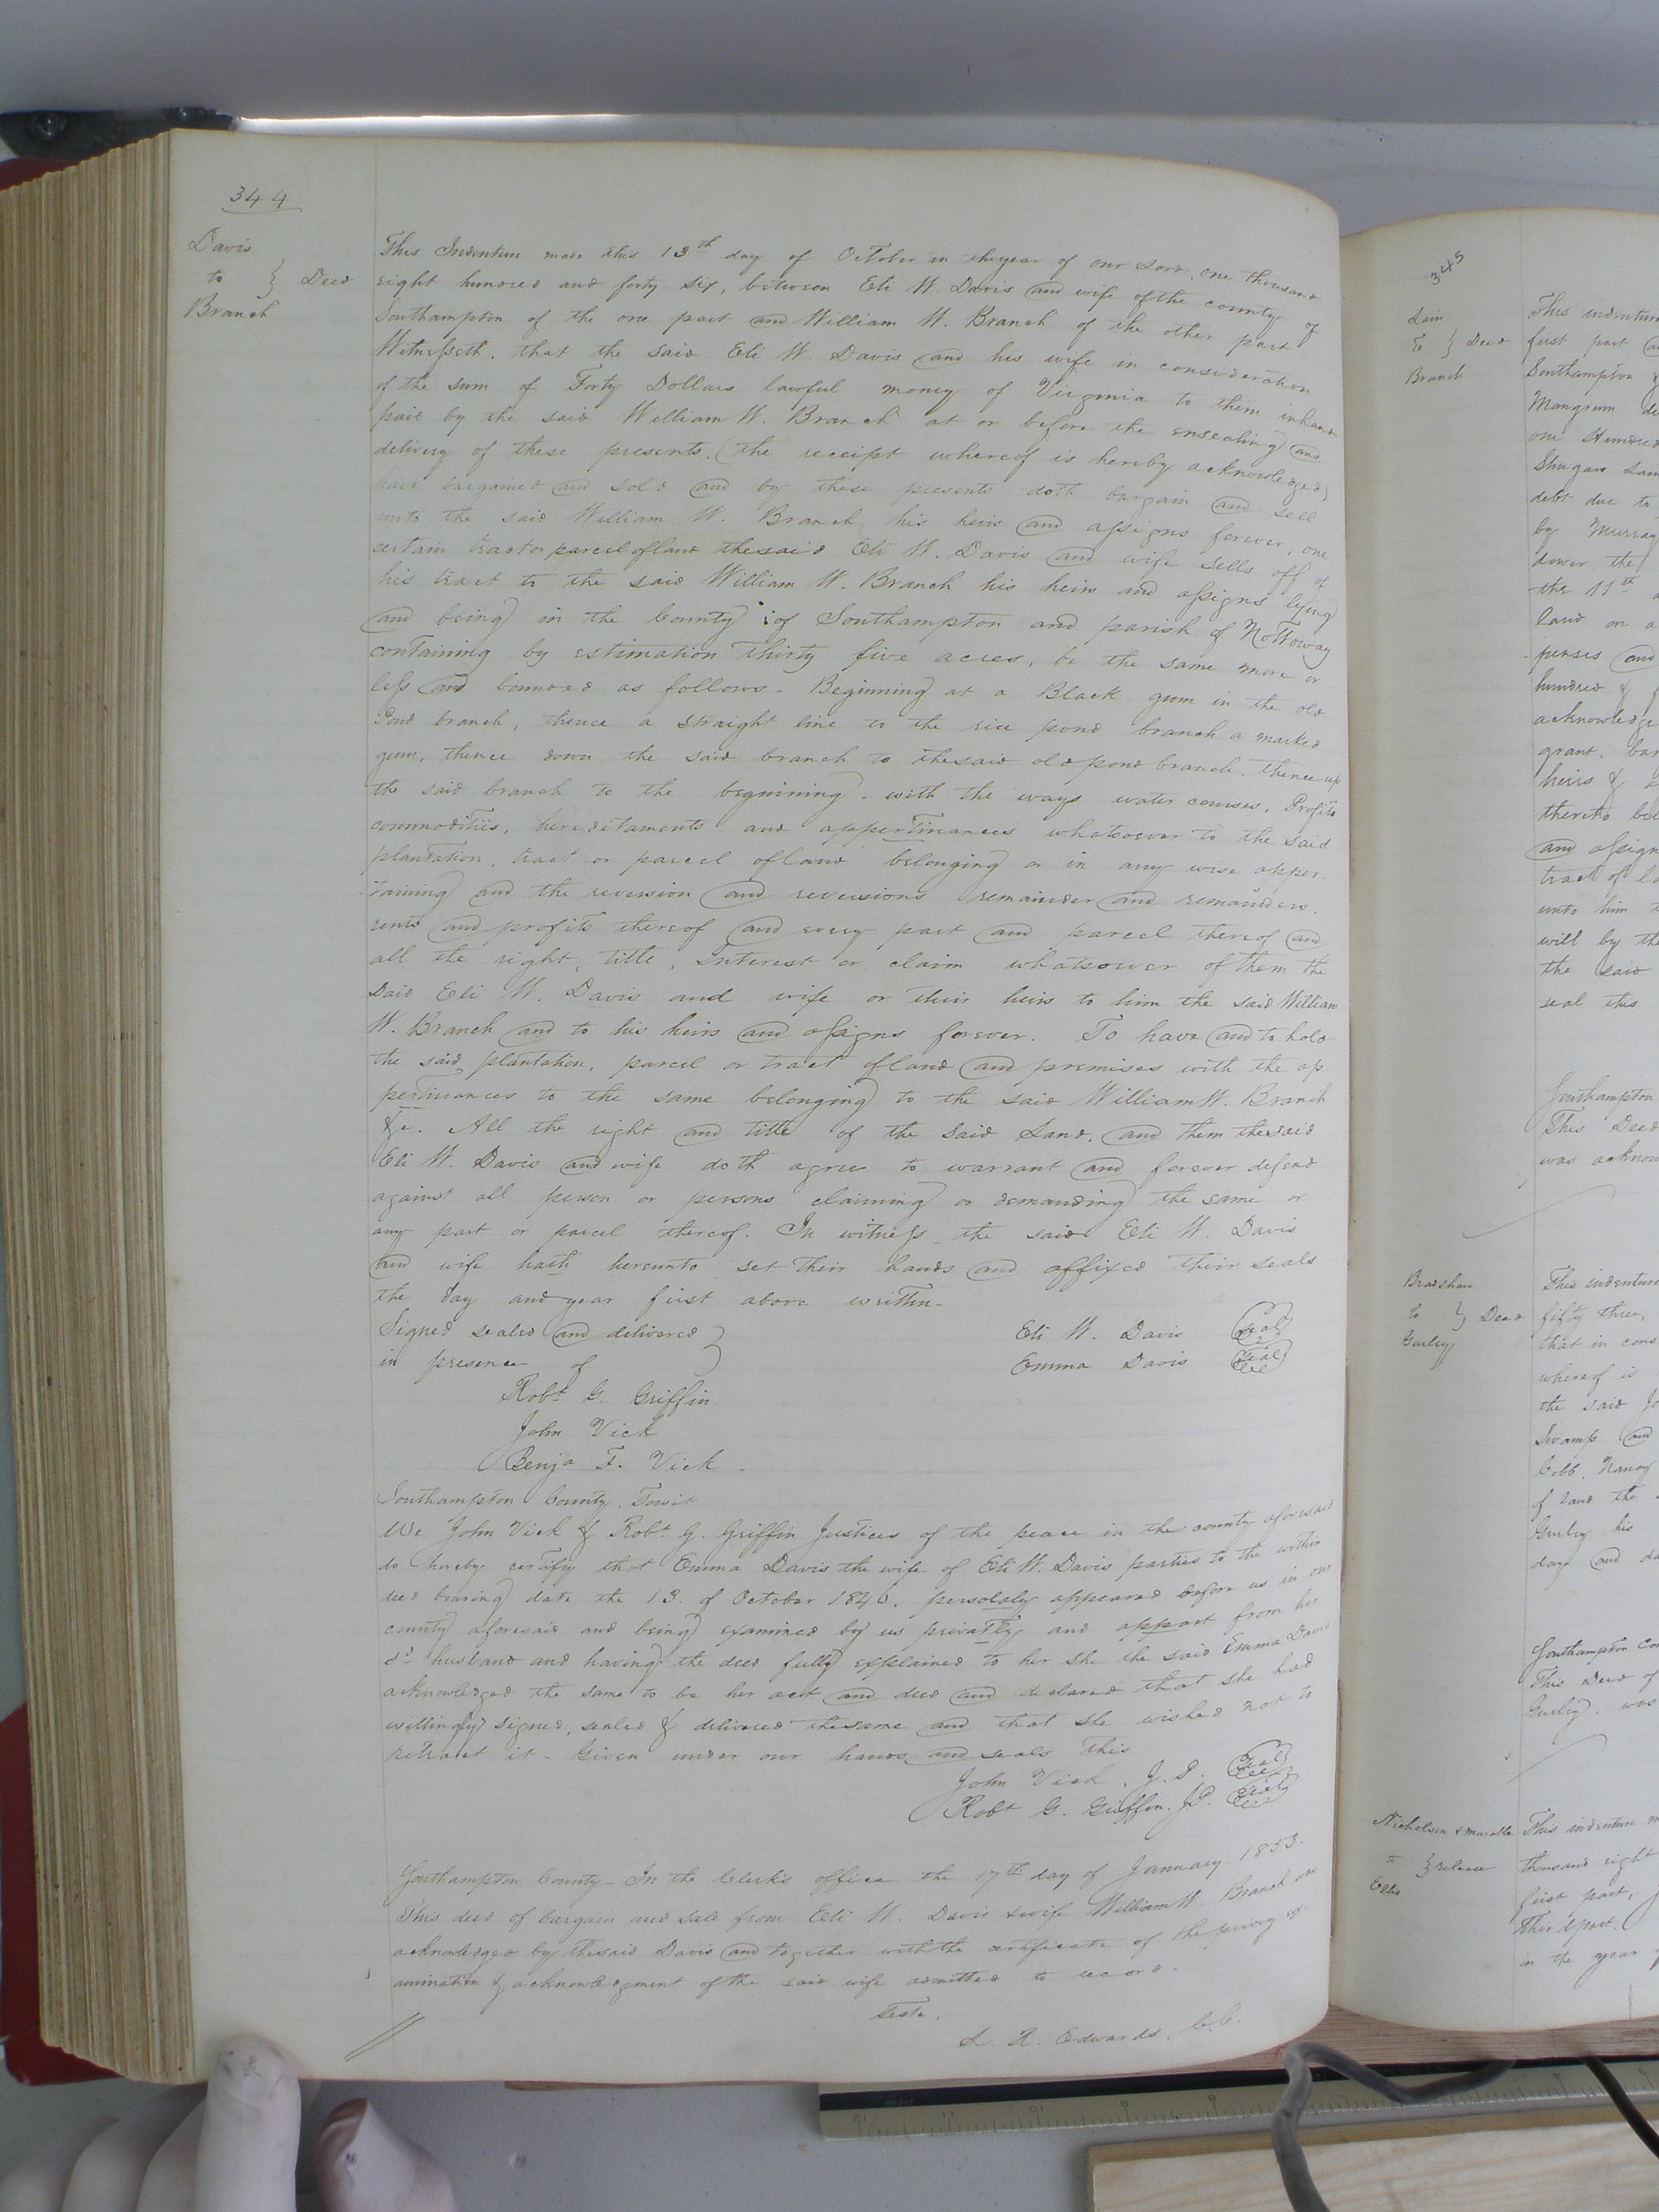 344
Davis
to } Deed
Branch
This Indenture made this 13th day of October in the year of our Lord, one thousand
eight hundred and forty six, between Eli W. Davis and wife of the county of
Southampton of the one part and William W. Branch of the other part
Witnesseth, that the said Eli W. Davis and his wife in consideration
of the sum of Forty Dollars lawful money of Virginia to them in hand
paid by the said William W. Branch at or before the ensealing and
delivery of these presents, (the receipt whereof is hereby acknowledged)
have bargained and sold and by these presents doth bargain and sell
unto the said William W. Branch his heirs and assigns forever, one
certain tract or parcel of land the said Eli W. Davis and wife sells off of
his tract to the said William W. Branch his heirs and assigns lying
and being in the County of Southampton and parish of Nottoway
containing by estimation Thirty five acres, be the same more or
less and bounded as follows - Beginning at a Black gum in the old
Pond branch, thence a straight line to the rice pond branch a marked
gum, thence down the said branch to the said old pond branch, thence up
the said branch to the beginining - with the ways water courses, Profits
commodities, hereditaments and appertinances whatsoever to the said
plantation, tract or parcel of land belonging or in any wise apper-
taining and the reversion and reversions remainder and remainders,
rents and profits thereof and every part and parcel thereof and
all the right, title, interest or claim whatsoever of them the
said Eli W. Davis and wife or their heirs to him the said William
W. Branch and to his heirs and assigns forever. To have and to hold
the said plantation, parcel or tract of land and premises with the ap-
pertinances to the same belonging to the said William W. Branch
&c. All the right and title of the said Land, and them the said
Eli W. Davis and wife doth agree to warrant and forever defend
against all person or persons claiming or demanding the same or
any part or parcel thereof. In witness the said Eli W. Davis
and wife hath hereunto set their hands and affixed their seals
the day and year first above written -
Signed sealed and delivered } Eli W. Davis Seal
in presence of Emma Davis Seal
Robt G. Griffin
John Vick
Benja F. Vick
Southampton County, Towit
We John Vick & Robt G. Griffin Justices of the peace in the county aforesaid
do hereby certify that Emma Davis the wife of Eli W. Davis parties to the within
deed bearing date the 13. of October 1846, persolaly appeared before us in our
county aforesaid and being examined by us privatly and appart from her
sd husband and having the deed fully explained to her she the said Emma Davis
acknowledged the same to be her act and deed and declared that she had
willingly signed, sealed & delivered the same and that she wished not to
retract it - Given under our hands and seals this
John Vick, J.P. Seal
Robt G. Griffin. J.P. Seal
Southampton County - In the Clerk's office the 17th day of January 1853.
This deed of bargain and sale from Eli W. Davis & wife William W. Branch was
acknowledged by the said Davis and together with the certificate of the privy ex-
amination & acknowledgment of the said wife admitted to record -
Teste,
L. R. Edwards, C.C.
345
Lain
To } Deed
Branch
This indenture
first part
Southampton
Mangrum
one Hundred
Shugars
debt due to
by Murray
dower, the
the 11th
land on a
penses and
hundred &
acknowledge
grant, bar
heirs &
thereto
and assign
tract of
unto him
will by the
the said
seal this
Southampton
This Deed
was acknow
Bradshaw
To } Deed
Gurley
This indenture
fifty three,
that in cons
whereof is
the said
Swamp and
Cobb, Nancy
of land the
Gurley his
day and
Southampton
This Deed of
Gurley, was
Nicholson
to } release
This indenture
thousand eight
first part,
in the year